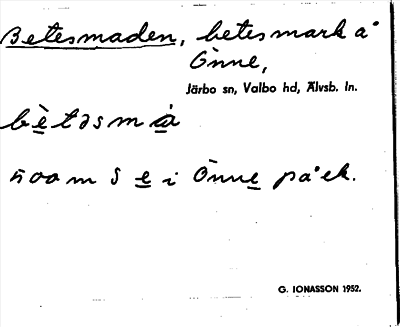 Betesmaden, betesmark å
Önne,
Järbo sn, Valbo hd, Älvsb. ln.
bètəsmà
500 m S e i Önne på ek.
G. IONASSON 1952.